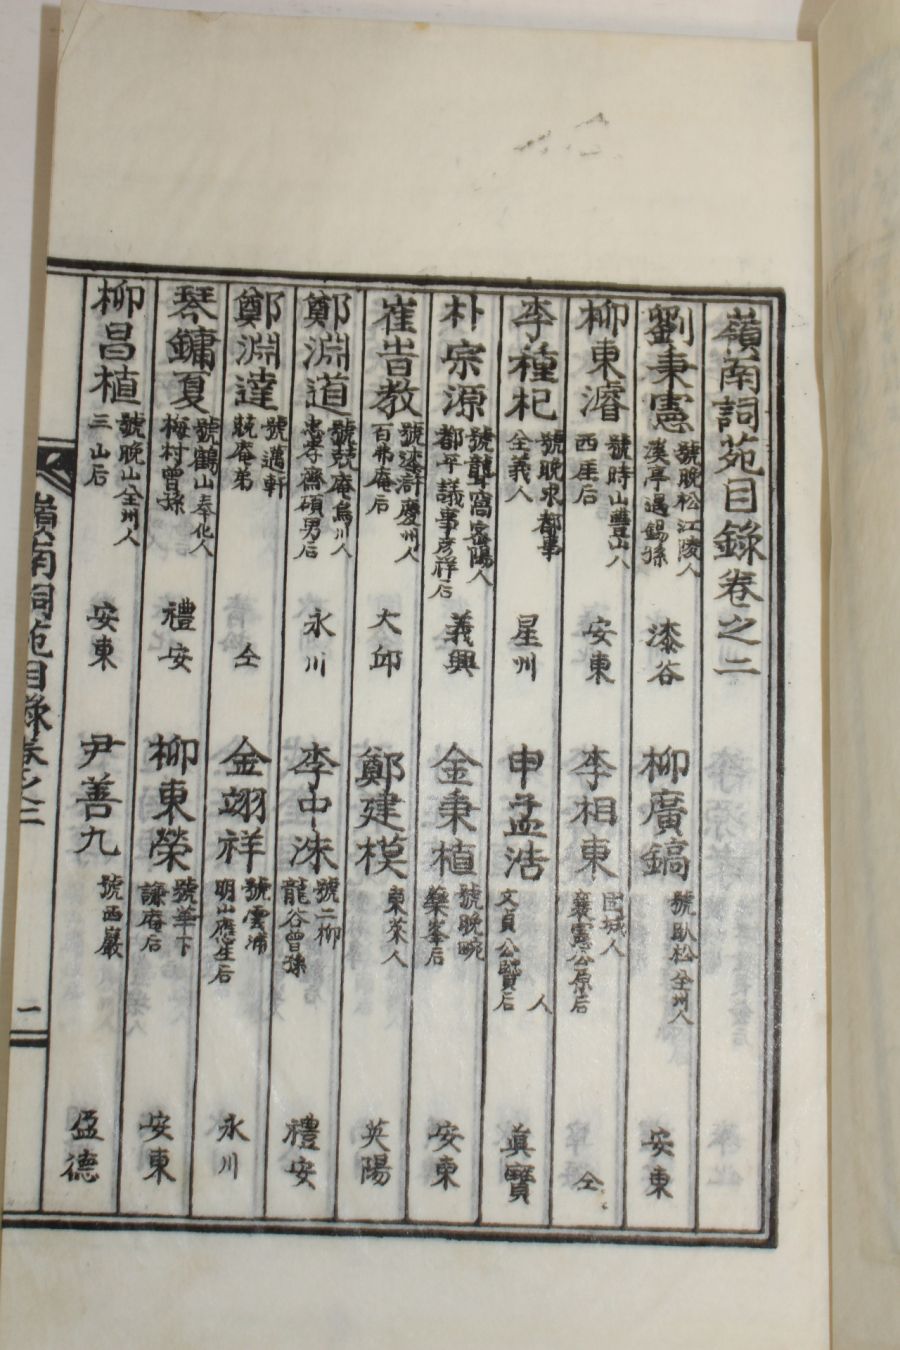 嶺南詞苑目錄卷之二
劉秉憲 號晚松江陵人 漢亭遇錫孫 漆谷 柳廣鎬 號臥松全州人 安東
柳東濬 號時山豊山人 西厓后 安東 李相東 固城人 襄憲公原后 仝
李種杞 號晚求都事 全義人 星州 申孟浩 人 文貞公賢后 眞寶
朴宗源 號聾窩密陽人 都平議事彦祥后 義興 金秉植 號晚畹 藥峯后 安東
崔教 號遯滸慶州人 百弗庵后 大邱 鄭建模 東萊人 英陽
鄭淵道 號兢庵烏川人 忠孝齋碩男后 永川 李中洙 號二柳 龍谷曾孫 禮安
鄭淵達 號邁軒 兢庵弟 仝 金翊祥 號雲浦 明山應生后 永川
琴鏞夏 號鶴山奉化人 梅村曾孫 禮安 柳東榮 號華下 謙庵后 安東
柳昌植 號晚山全州人 三山后 安東 尹善九 號西巖 盈德
嶺南詞苑目錄卷之二
一